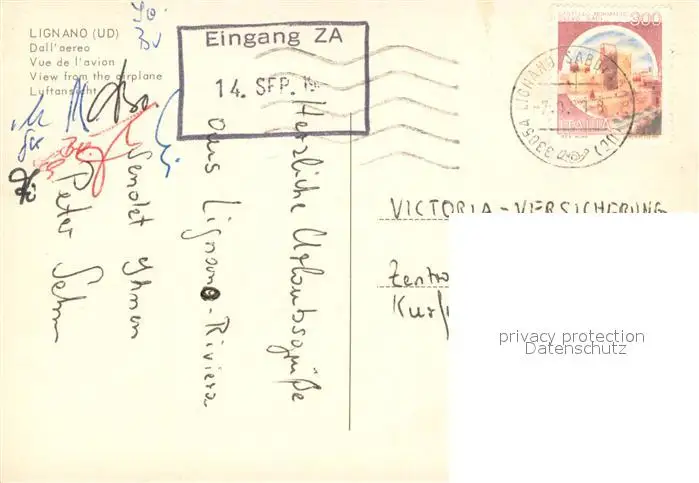 LIGNANO (UD)
Dall'aereo
Vue de l'avion
View from the airplane
Luftansicht
Eingang ZA
14. SEP.
300
ITALIA
33054 LIGNANO SABB
Herzliche Urlaubsgrüße
aus Lignano-Riviera
sendet Ihnen
Peter
VICTORIA-VERSICHERUNG
Zentr
Kurf
privacy protection
Datenschutz